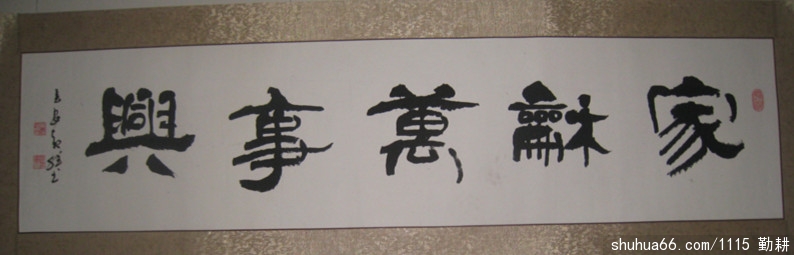 家龢萬事興
shuhua66.com/1115 勤耕